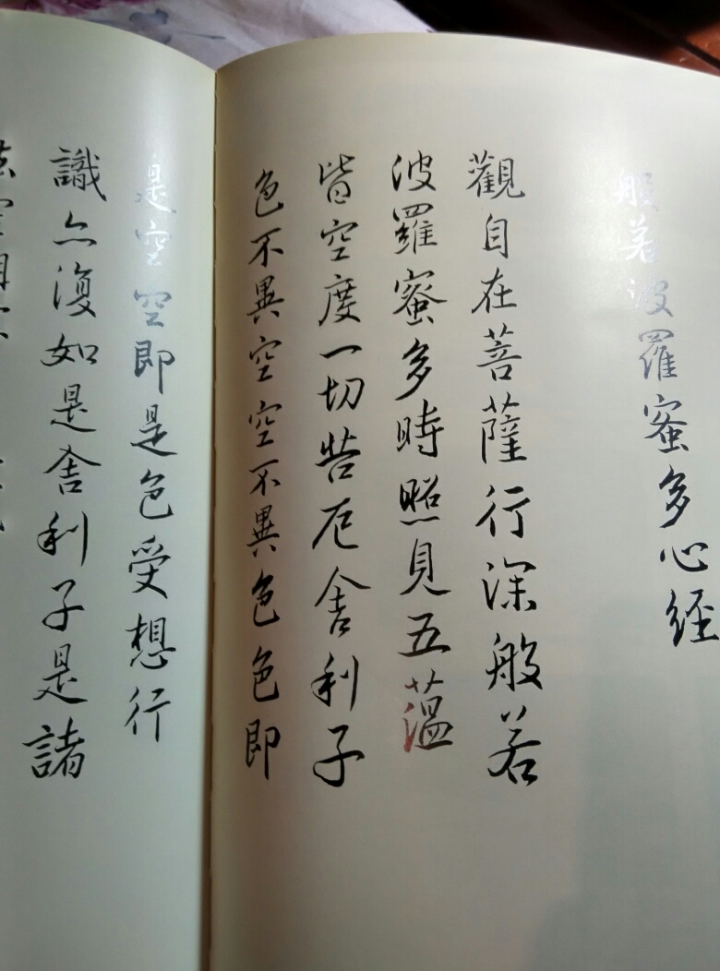 般若波羅蜜多心経
觀自在菩薩行深般若
波羅蜜多時照見五蕰
皆空度一切苦厄舎利子
色不異空空不異色色即
是空空即是色受想行
識亦復如是舎利子是諸
法空相